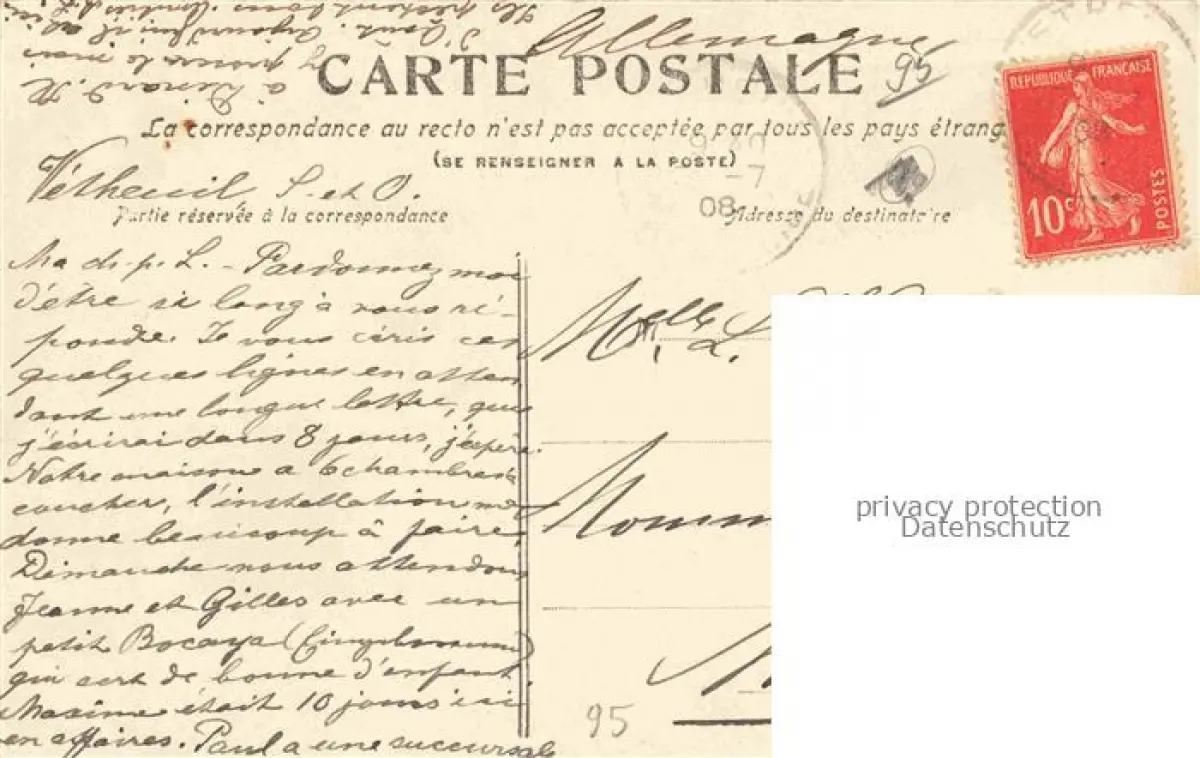 Allemagne
CARTE POSTALE
95
La correspondance au recto n'est pas acceptée par tous les pays étrang
(SE RENSEIGNER A LA POSTE)
Vétheuil S. et O.
Partie réservée à la correspondance
Adresse du destinataire
REPUBLIQUE FRANÇAISE
10c
POSTES
-7
08
Ma ch. p. L. - Pardonnez moi
d'être si long à vous ré-
pondre. Je vous écris ces
quelques lignes en atten
dant une longue lettre, que
j'écrirai dans 8 jours, j'espère.
Notre maison a 6 chambres à
coucher, l'installation me
donne beaucoup à faire,
Dimanche nous attendons
Jeanne et Gilles avec un
petit Bocaya
qui sert de bonne d'enfant.
Maxime était 10 jours ici
en affaires. Paul a une succursale
à Dinard. N
pour le mois
d'Août. Aujourd'hui il
Melle L.
Momm
95
privacy protection
Datenschutz